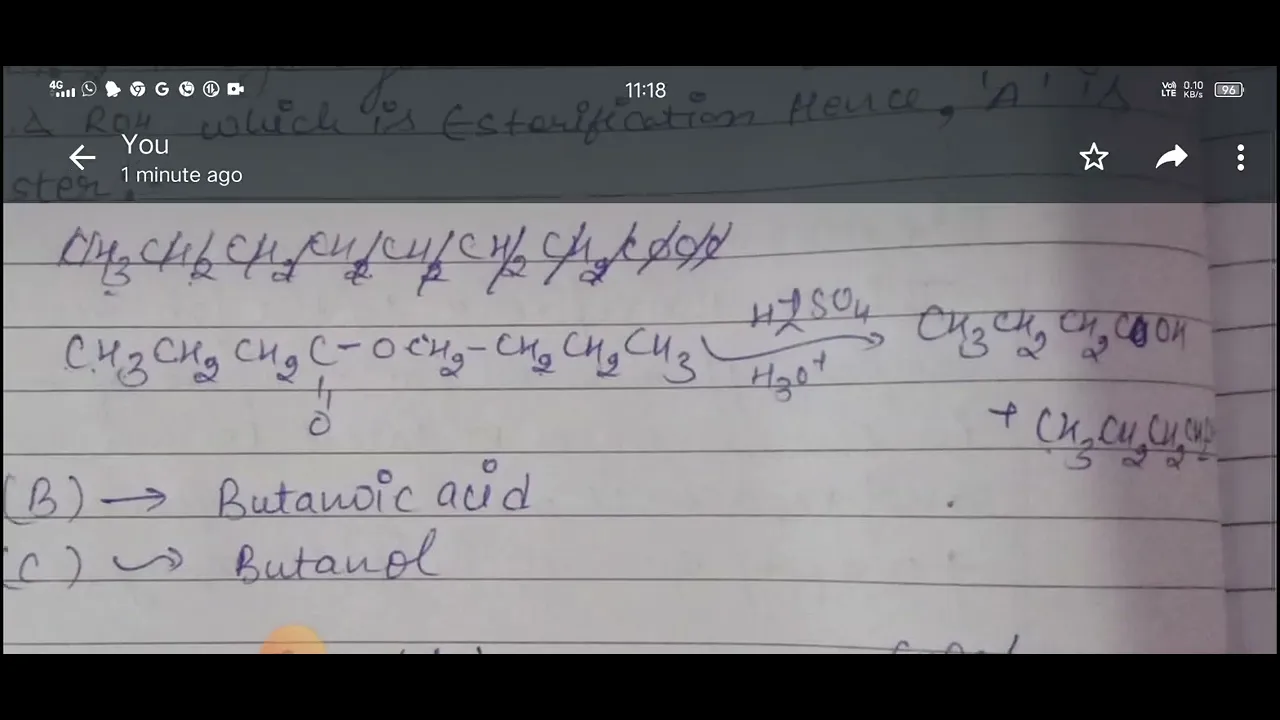 4G 11:18 VoI) LTE 0.10 KB/s 96
Δ ROH which is Esterification Hence, 'A' is
You
1 minute ago
ster.
CH3CH2CH2CH2CH2CH2CH2COOH
CH3CH2CH2C-OCH2-CH2CH2CH3 H2SO4 H3O+ CH3CH2CH2COOH
O
+ CH3CH2CH2CH2
(B) → Butanoic acid
(C) → Butanol